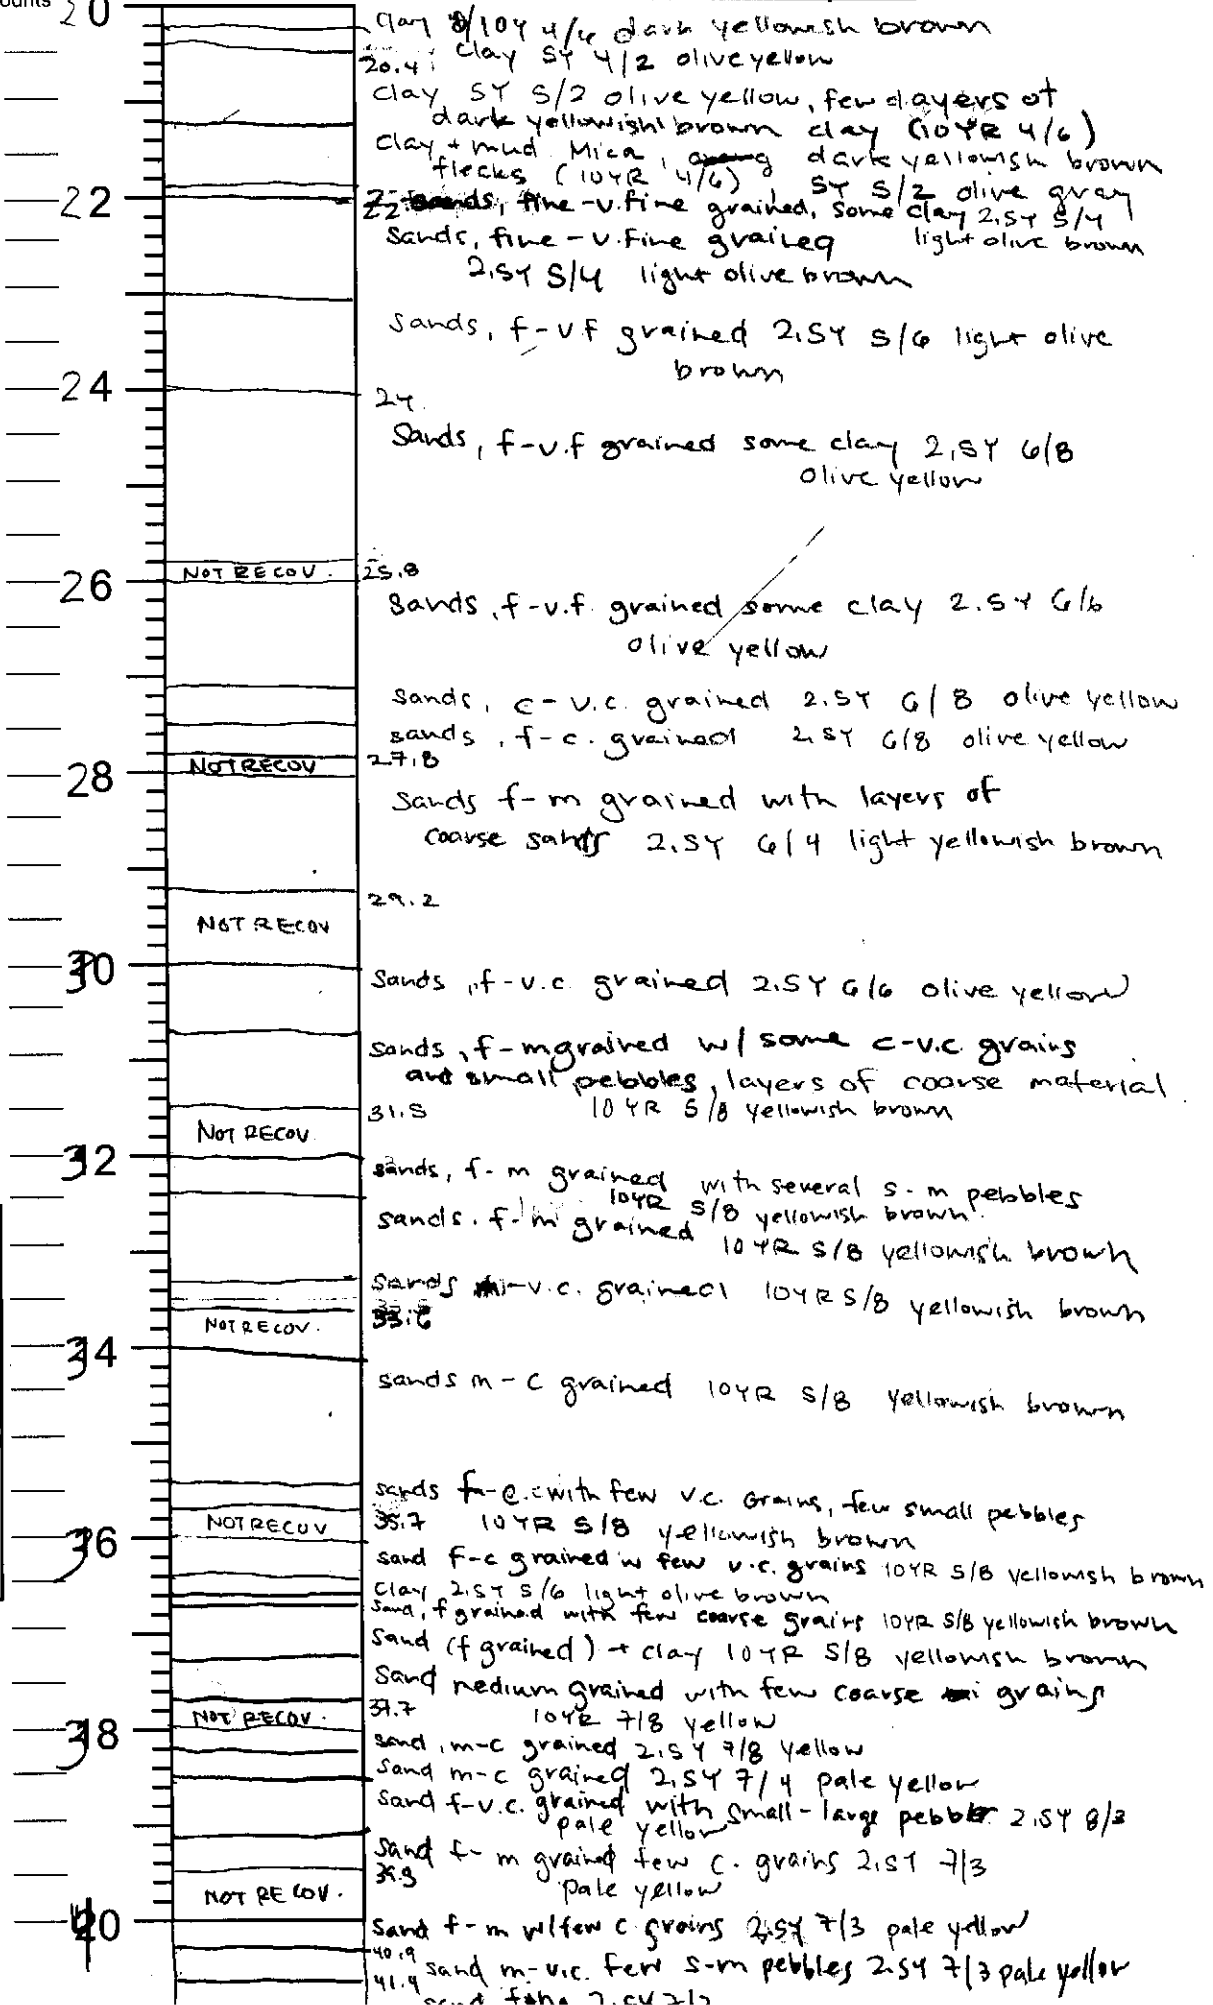 ounts
20
clay 10Y 4/6 dark yellowish brown
20.4: clay 5Y 4/2 olive yellow
clay 5Y 5/2 olive yellow, few layers of
dark yellowish brown clay (10YR 4/6)
clay + mud Mica, dark yellowish brown
flecks (10YR 4/6), 5Y 5/2 olive gray
22
22 sands, fine-v.fine grained, some clay 2.5Y 5/4
light olive brown
sands, fine-v.fine grained
2.5Y 5/4 light olive brown
sands, f-vf grained 2.5Y 5/6 light olive
brown
24
24
Sands, f-v.f grained some clay 2.5Y 6/8
olive yellow
NOT RECOV. 25.8
26
Sands, f-v.f. grained some clay 2.5Y 6/6
olive yellow
sands, c-v.c. grained 2.5Y 6/8 olive yellow
sands, f-c. grained 2.5Y 6/8 olive yellow
NOT RECOV 27.8
28
Sands f-m grained with layers of
coarse sands 2.5Y 6/4 light yellowish brown
29.2
NOT RECOV
30
Sands, f-v.c. grained 2.5Y 6/6 olive yellow
sands, f-m grained w/ some c-v.c. grains
and small pebbles, layers of coarse material
31.5 10YR 5/8 yellowish brown
NOT RECOV.
32
sands, f-m grained with several s-m pebbles
10YR 5/8 yellowish brown
sands. f-m grained
10YR 5/8 yellowish brown
Sands m-v.c. grained 10YR 5/8 yellowish brown
33.6
NOT RECOV.
34
sands m-c grained 10YR 5/8 yellowish brown
sands f-c. with few v.c. Grains, few small pebbles
NOT RECOV 35.7 10YR 5/8 yellowish brown
36
sand f-c grained w few v.c. grains 10YR 5/8 yellowish brown
Clay 2.5Y 5/6 light olive brown
Sand, f grained with few coarse grains 10YR 5/8 yellowish brown
Sand (f grained) + clay 10YR 5/8 yellowish brown
Sand medium grained with few coarse grains
NOT RECOV. 37.7 10YR 7/8 yellow
38
sand, m-c grained 2.5Y 7/8 yellow
Sand m-c grained 2.5Y 7/4 pale yellow
Sand f-v.c. grained with small-large pebble 2.5Y 8/3
pale yellow
Sand f-m grained few c. grains 2.5Y 7/3
pale yellow
NOT RECOV.
40
Sand f-m w/few c grains 2.5Y 7/3 pale yellow
40.9
sand m-v.c. few s-m pebbles 2.5Y 7/3 pale yellow
41.4